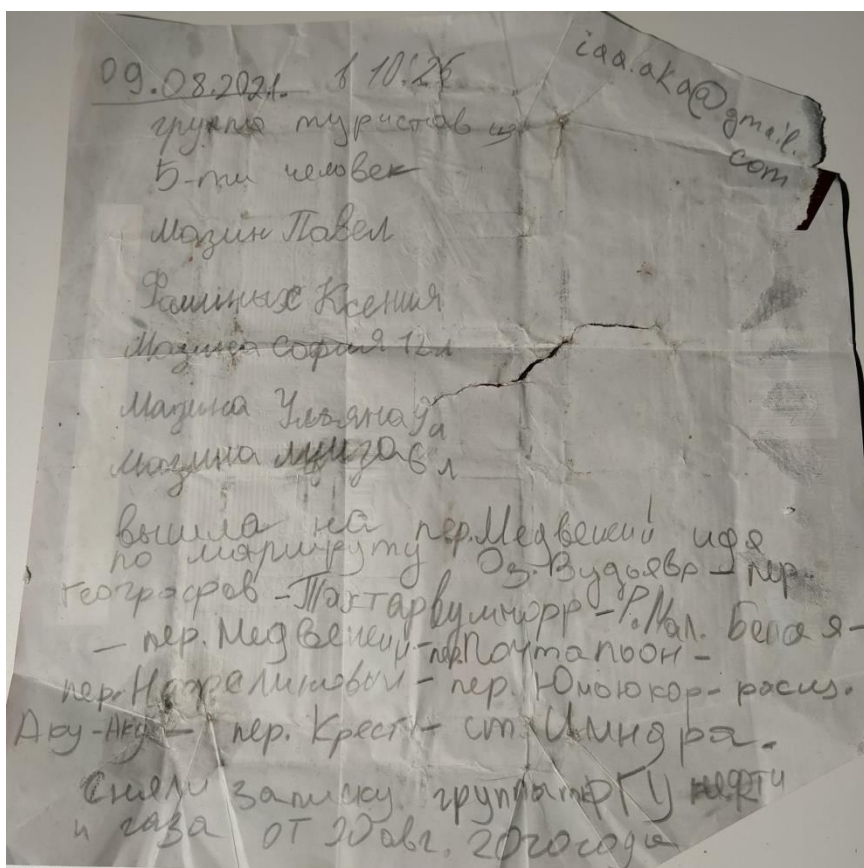 09.08.2021. в 10:26
iaa.aka@gmail.
com
группа туристов из
5-ти человек
Мазин Павел
Фоминых Ксения
Мазина София 12л
Мазина Ульяна 9л
Мазина Луиза 6л
вышла на пер. Медвежий идя
по маршруту Оз. Вудъявр – пер.
географов – Тахтарвумчорр – Р. Мал. Белая –
– пер. Медвежий – пер. Почтальон –
пер. Нефелиновый – пер. Юмъюкор – расщ.
Аку-Аку – пер. Крест – ст. Имндра.
Сняли записку группы РГУ нефти
и газа от 20 авг. 2020 года